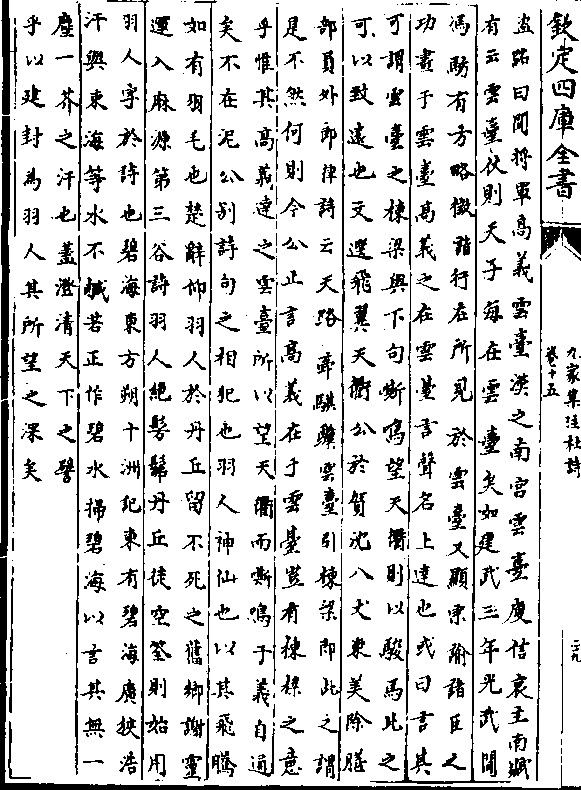 欽定四庫全書
九家集注杜詩
卷十五
盗路曰聞将軍高義雲臺漢之南宮雲臺庾信哀王南賦
有云雲臺仗則天子每在雲臺矣如建武三年光武聞
馮勤有方略徵詣行在所見於雲臺又顯宗論諸臣之
功畫于雲臺高義之在雲臺言聲名上達也或曰言其
可謂雲臺之棟梁與下句嘶鳴望天衢則以駿馬比之
可以致遠也文選飛翼天衢公於賀沈八丈東美除膳
部員外郎律詩云天路牽騏驥雲臺引棟梁即此之謂
是不然何則今公止言高義在于雲臺豈有棟樑之意
乎惟其高義達之雲臺所以望天衢而嘶鳴于義自通
矣不在泥公别詩句之相犯也羽人神仙也以其飛騰
如有羽毛也楚辭仰羽人於丹丘留不死之舊鄉謝靈
運入麻源第三谷詩羽人絶髣髴丹丘徒空筌則始用
羽人字於詩也碧海東方朔十洲紀東有碧海廣狹浩
汗與東海等水不鹹苦正作碧水掃碧海以言其無一
塵一芥之汗也蓋澄清天下之譬
乎以建封為羽人其所望之深矣